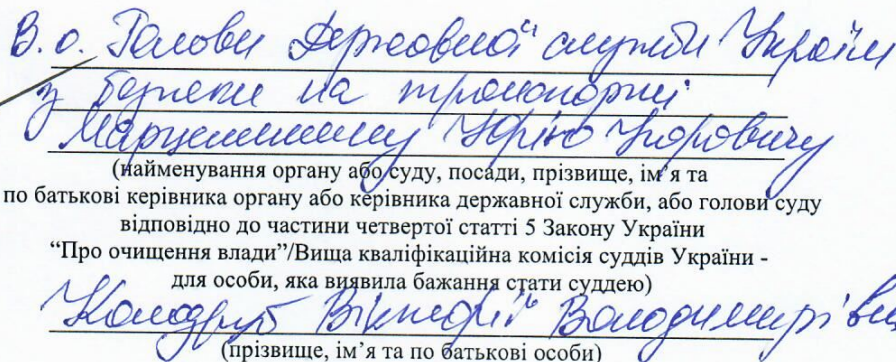 В.о. Голови Державної служби України
з безпеки на транспорті
Марцелишину Юрію Ігоровичу
(найменування органу або суду, посади, прізвище, ім’я та
по батькові керівника органу або керівника державної служби, або голови суду
відповідно до частини четвертої статті 5 Закону України
“Про очищення влади”/Вища кваліфікаційна комісія суддів України -
для особи, яка виявила бажання стати суддею)
Вікторії Володимирівни
(прізвище, ім’я та по батькові особи)